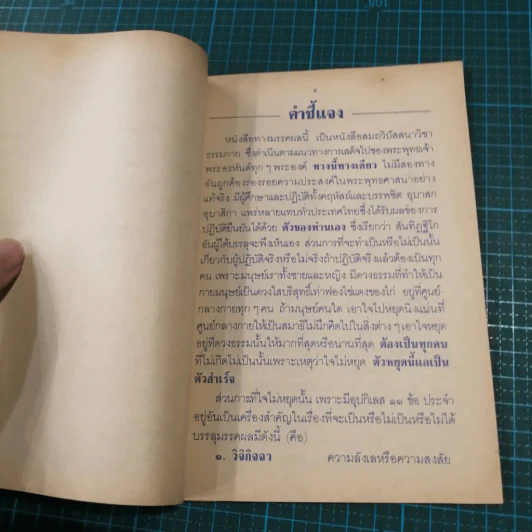 คำชี้แจง
หนังสือทางมรรคผลนี้ เป็นหนังสือสมถวิปัสสนาวิชา
ธรรมกาย ซึ่งดำเนินตามแนวทางการเสด็จไปของพระพุทธเจ้า
พระอรหันต์ทุก ๆ พระองค์ ทางนี้ทางเดียว ไม่มีสองทาง
อันถูกต้องร่องรอยความประสงค์ในพระพุทธศาสนาอย่าง
แท้จริง มีผู้ศึกษาและปฏิบัติทั้งคฤหัสถ์และบรรพชิต อุบาสก
อุบาสิกา แพร่หลายแทบทั่วประเทศไทยซึ่งได้รับผลของการ
ปฏิบัติยืนยันได้ด้วย ตัวของท่านเอง ซึ่งเรียกว่า สันทิฏฐิโก
อันผู้ได้บรรลุจะพึงเห็นเอง ส่วนการที่จะทำเป็นหรือไม่เป็นนั้น
เกี่ยวกับผู้ปฏิบัติจริงหรือไม่จริงถ้าปฏิบัติจริงแล้วต้องเป็นทุก
คน เพราะมนุษย์เราทั้งชายและหญิง มีดวงธรรมที่ทำให้เป็น
กายมนุษย์เป็นดวงใสบริสุทธิ์เท่าฟองไข่แดงของไก่ อยู่ที่ศูนย์-
กลางกายทุก ๆ คน ถ้ามนุษย์คนใด เอาใจไปหยุดนิ่งแน่นที่
ศูนย์กลางกายให้เป็นสมาธิไม่นึกคิดไปในสิ่งต่าง ๆ เอาใจหยุด
อยู่ที่ดวงธรรมนั้นให้มากที่สุดหรือนานที่สุด ต้องเป็นทุกคน
ที่ไม่เกิดไม่เป็นนั้นเพราะเหตุว่าใจไม่หยุด ตัวหยุดนี้แลเป็น
ตัวสำเร็จ
ส่วนการที่ใจไม่หยุดนั้น เพราะมีอุปกิเลส ๑๑ ข้อ ประจำ
อยู่อันเป็นเครื่องสำคัญในเรื่องที่จะเป็นหรือไม่เป็นหรือไม่ได้
บรรลุมรรคผลมีดังนี้ (คือ)
๑. วิจิกิจฉา ความลังเลหรือความสงสัย